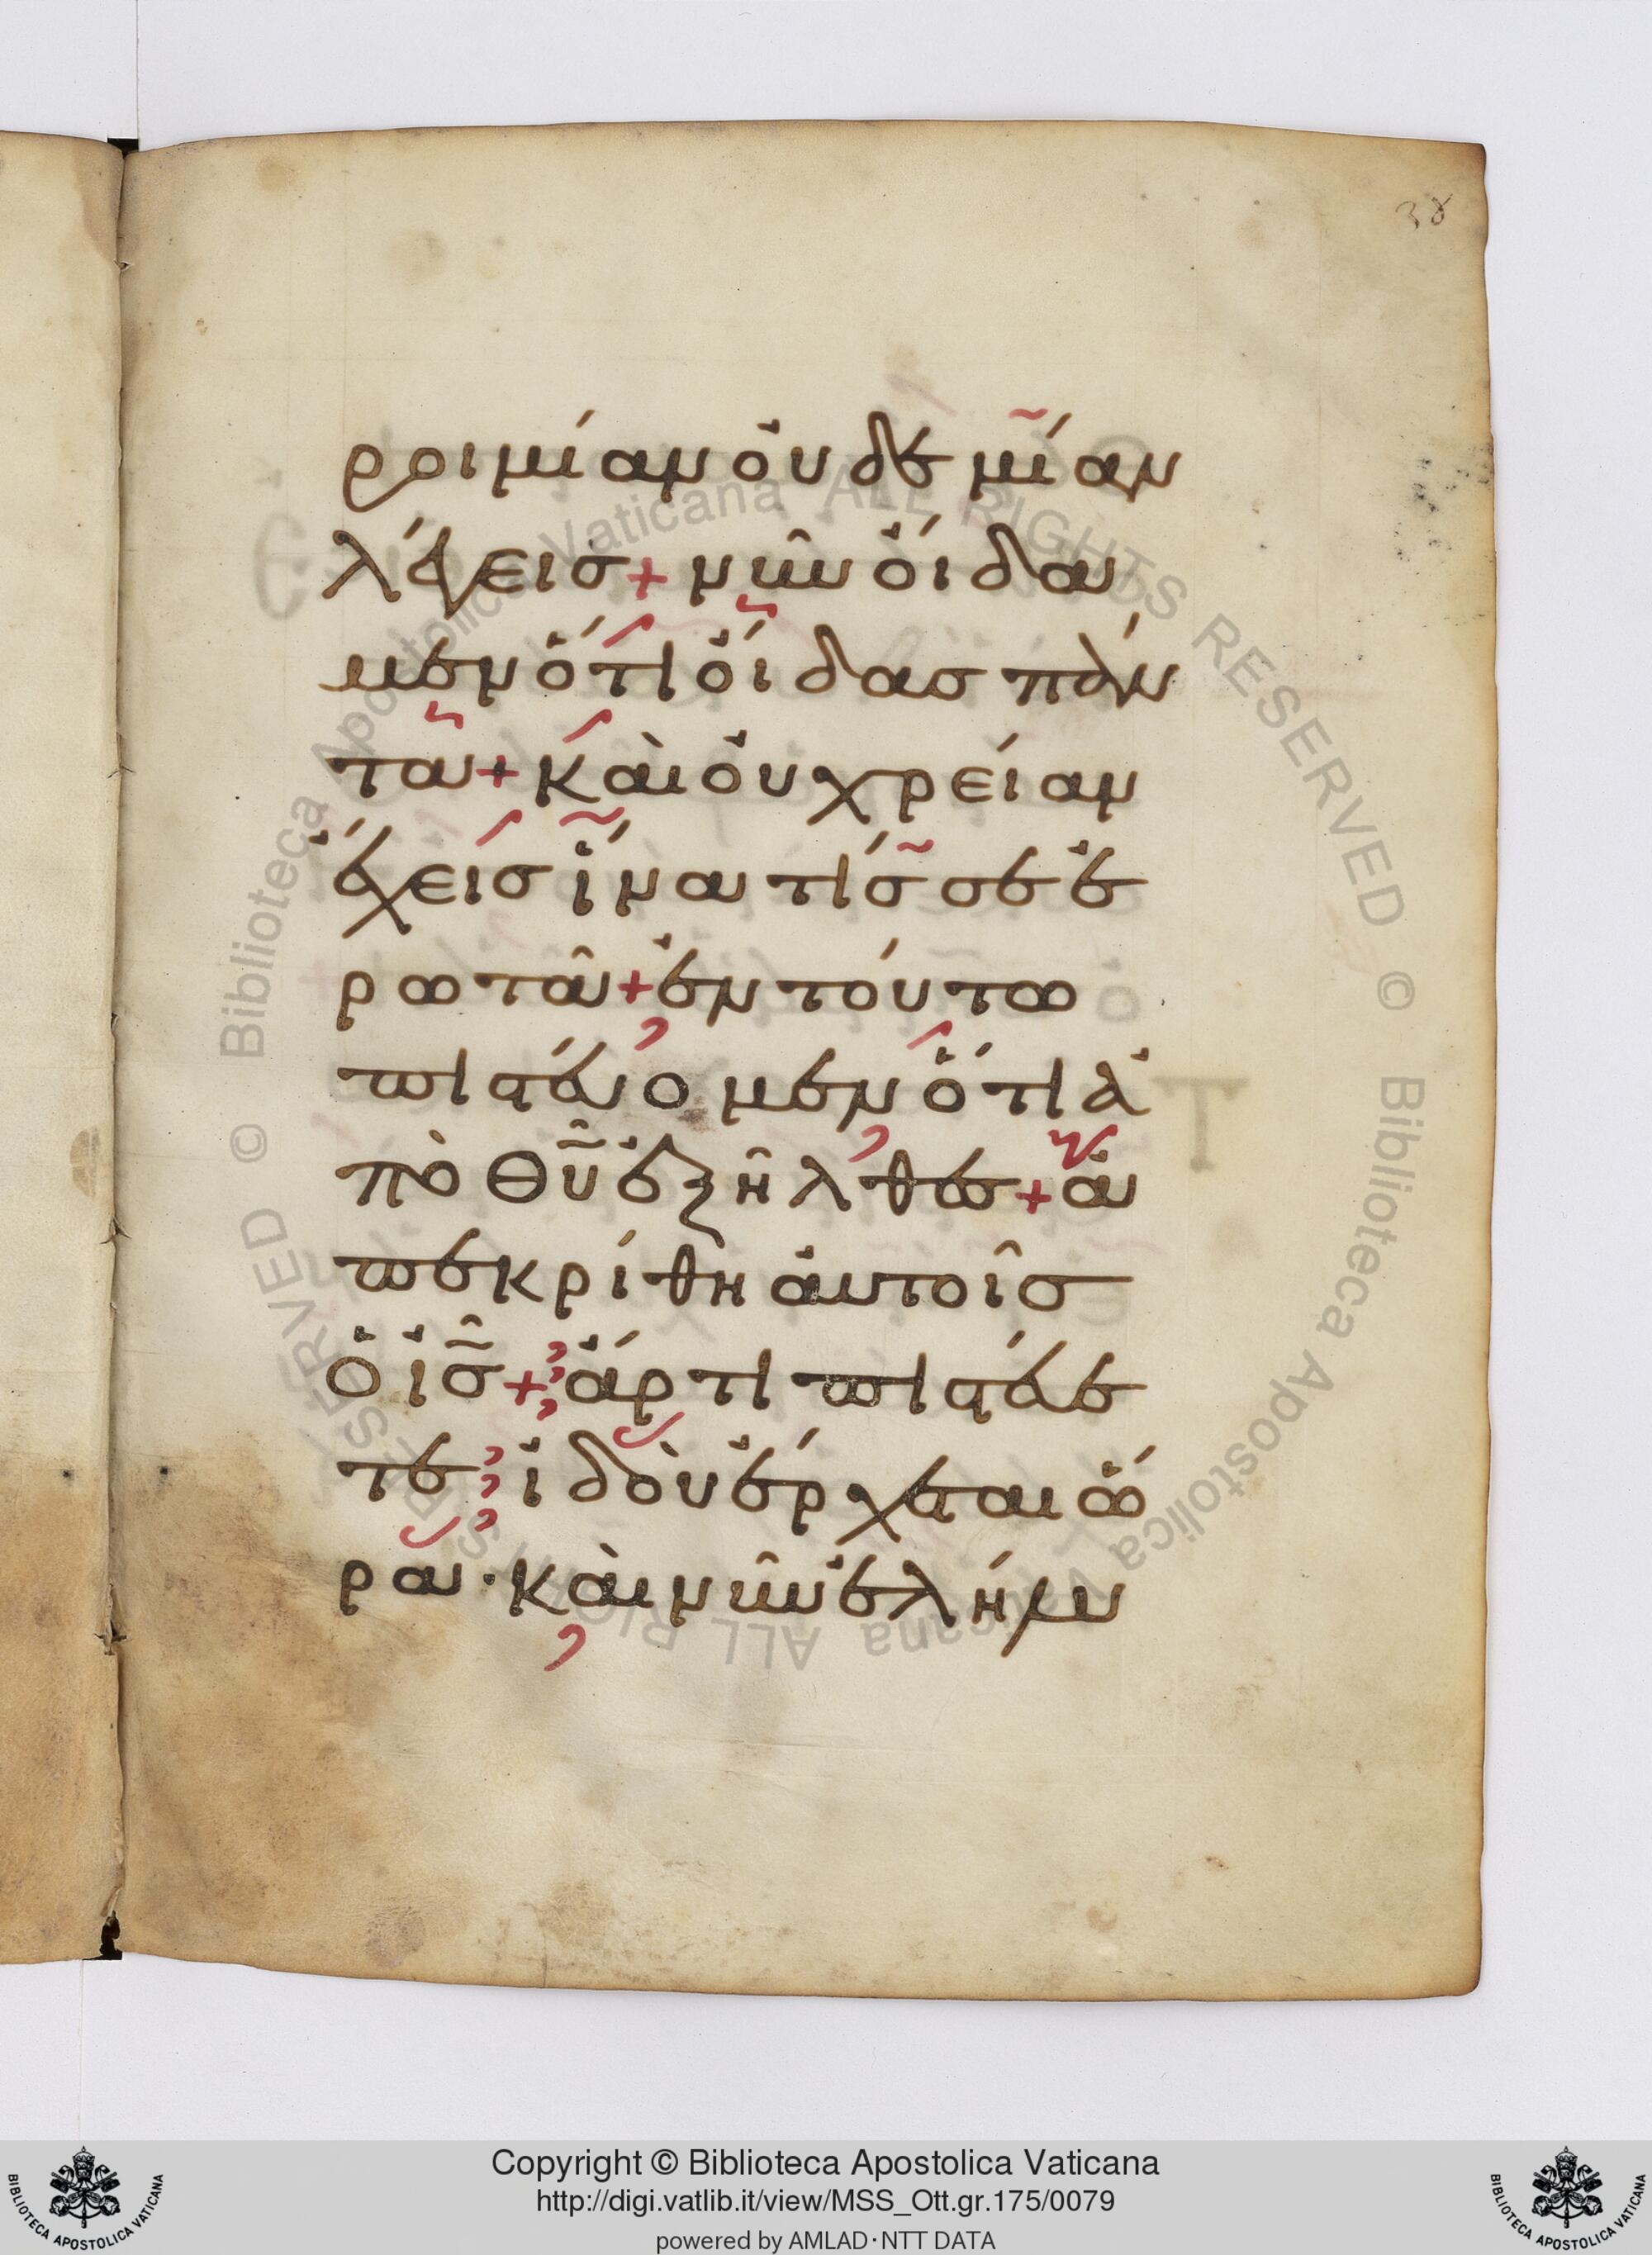 38
ροιμίαν οὐδεμίαν
λέγεις + νῦν οἴδα
μεν ὅτι οἶδας πάν
τα + καὶ οὐ χρείαν
ἔχεις ἵνα τίς σε ἐ
ρωτᾶ + ἐν τούτω
πιστεύομεν ὅτι ἀ
πὸ θυ ἐξῆλθες + ἀ
πεκρίθη αὐτοῖς
ὁ ις + ἄρτι πιστεύε
τε ἰδοὺ ἔρχεται ὥ
ρα · καὶ νῦν ἐλήλυ
© Biblioteca Apostolica Vaticana ALL RIGHTS RESERVED © Biblioteca Apostolica Vaticana ALL RIGHTS RESERVED
Copyright © Biblioteca Apostolica Vaticana
http://digi.vatlib.it/view/MSS_Ott.gr.175/0079
powered by AMLAD·NTT DATA
BIBLIOTECA APOSTOLICA VATICANA
BIBLIOTECA APOSTOLICA VATICANA